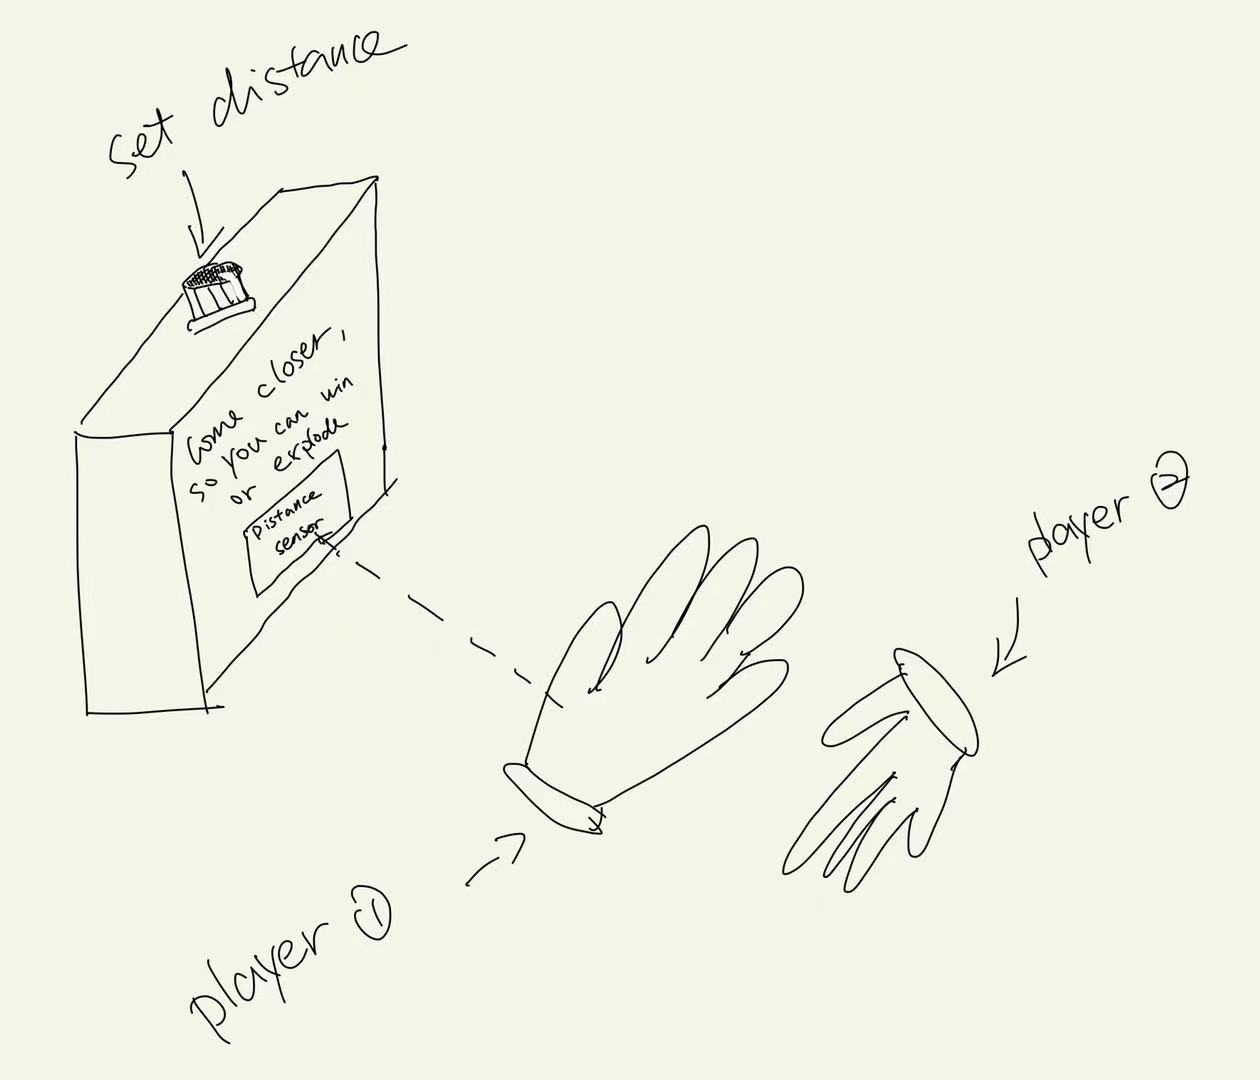 set distance
Come closer,
so you can win
or explode
Distance
sensor
player ②
player ①